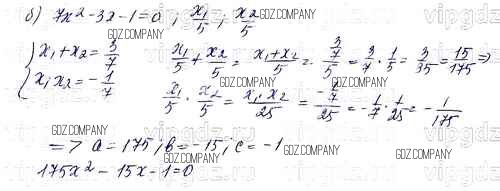 б) 7x² - 3x - 1 = 0 ; x₁/5 ; x₂/5
{ x₁ + x₂ = 3/7
x₁x₂ = -1/7
x₁/5 + x₂/5 = (x₁+x₂)/5 = (3/7)/5 = 3/7 · 1/5 = 3/35 = 15/175 ⇒
x₁/5 · x₂/5 = (x₁·x₂)/25 = (-1/7)/25 = -1/7 · 1/25 = -1/175
=> a = 175 ; b = -15 ; c = -1
175x² - 15x - 1 = 0
GDZ.COMPANY
GDZ.COMPANY
GDZ.COMPANY
GDZ.COMPANY
GDZ.COMPANY
GDZ.COMPANY
GDZ.COMPANY
GDZ.COMPANY